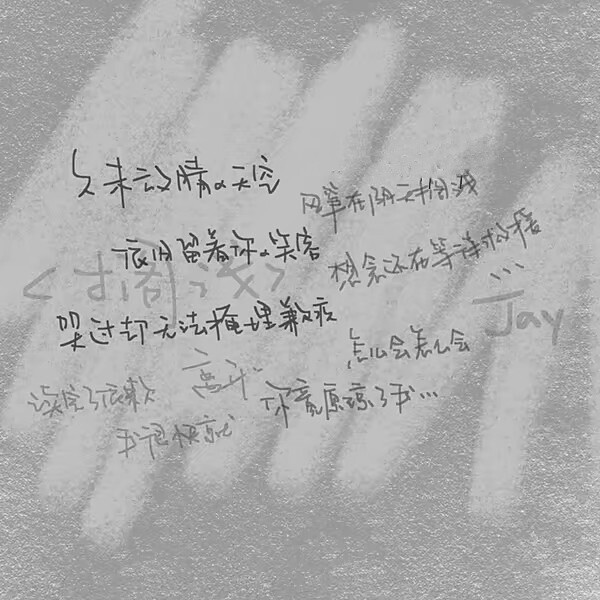 久未放晴的天空
依旧留着你的笑容
<搁浅>
哭过却无法掩埋歉疚
风筝在阴天搁浅
想念还在等待救援
...
—Jay
怎么会怎么会
你竟原谅了我...
读完了依赖
我很快就
离开